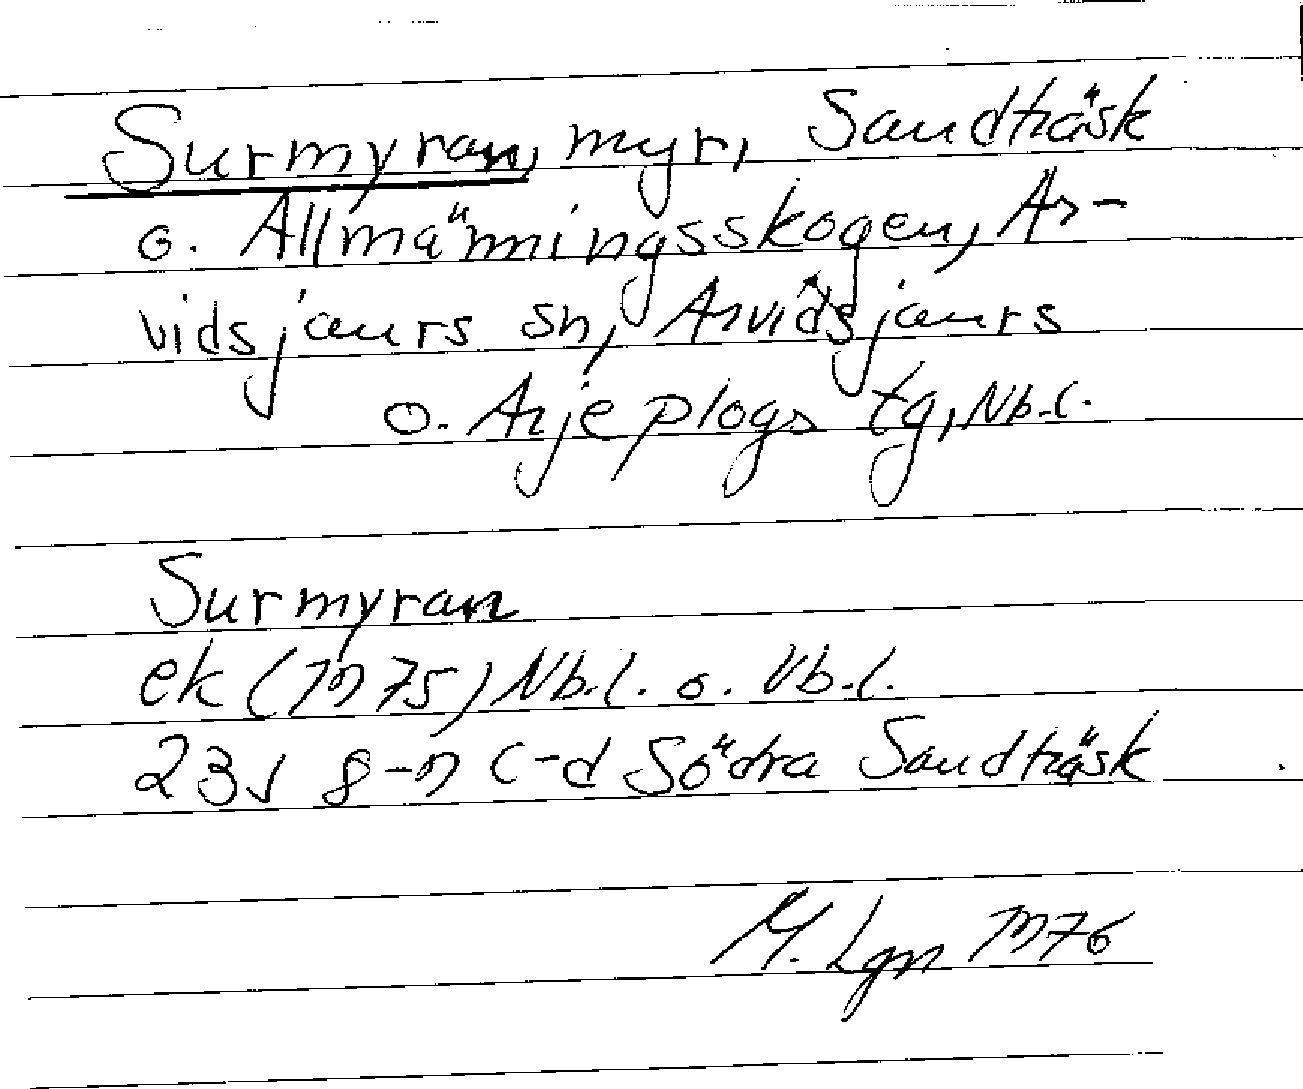 Surmyran, myr, Sandträsk
o. Allmänningsskogen, Ar-
vidsjaurs sn, Arvidsjaurs
o. Arjeplogs tg, Nb.l.
Surmyran
ek (1975) Nb.l. o. Vb.l.
23J 8-9 c-d Södra Sandträsk
M. Lgn 1976